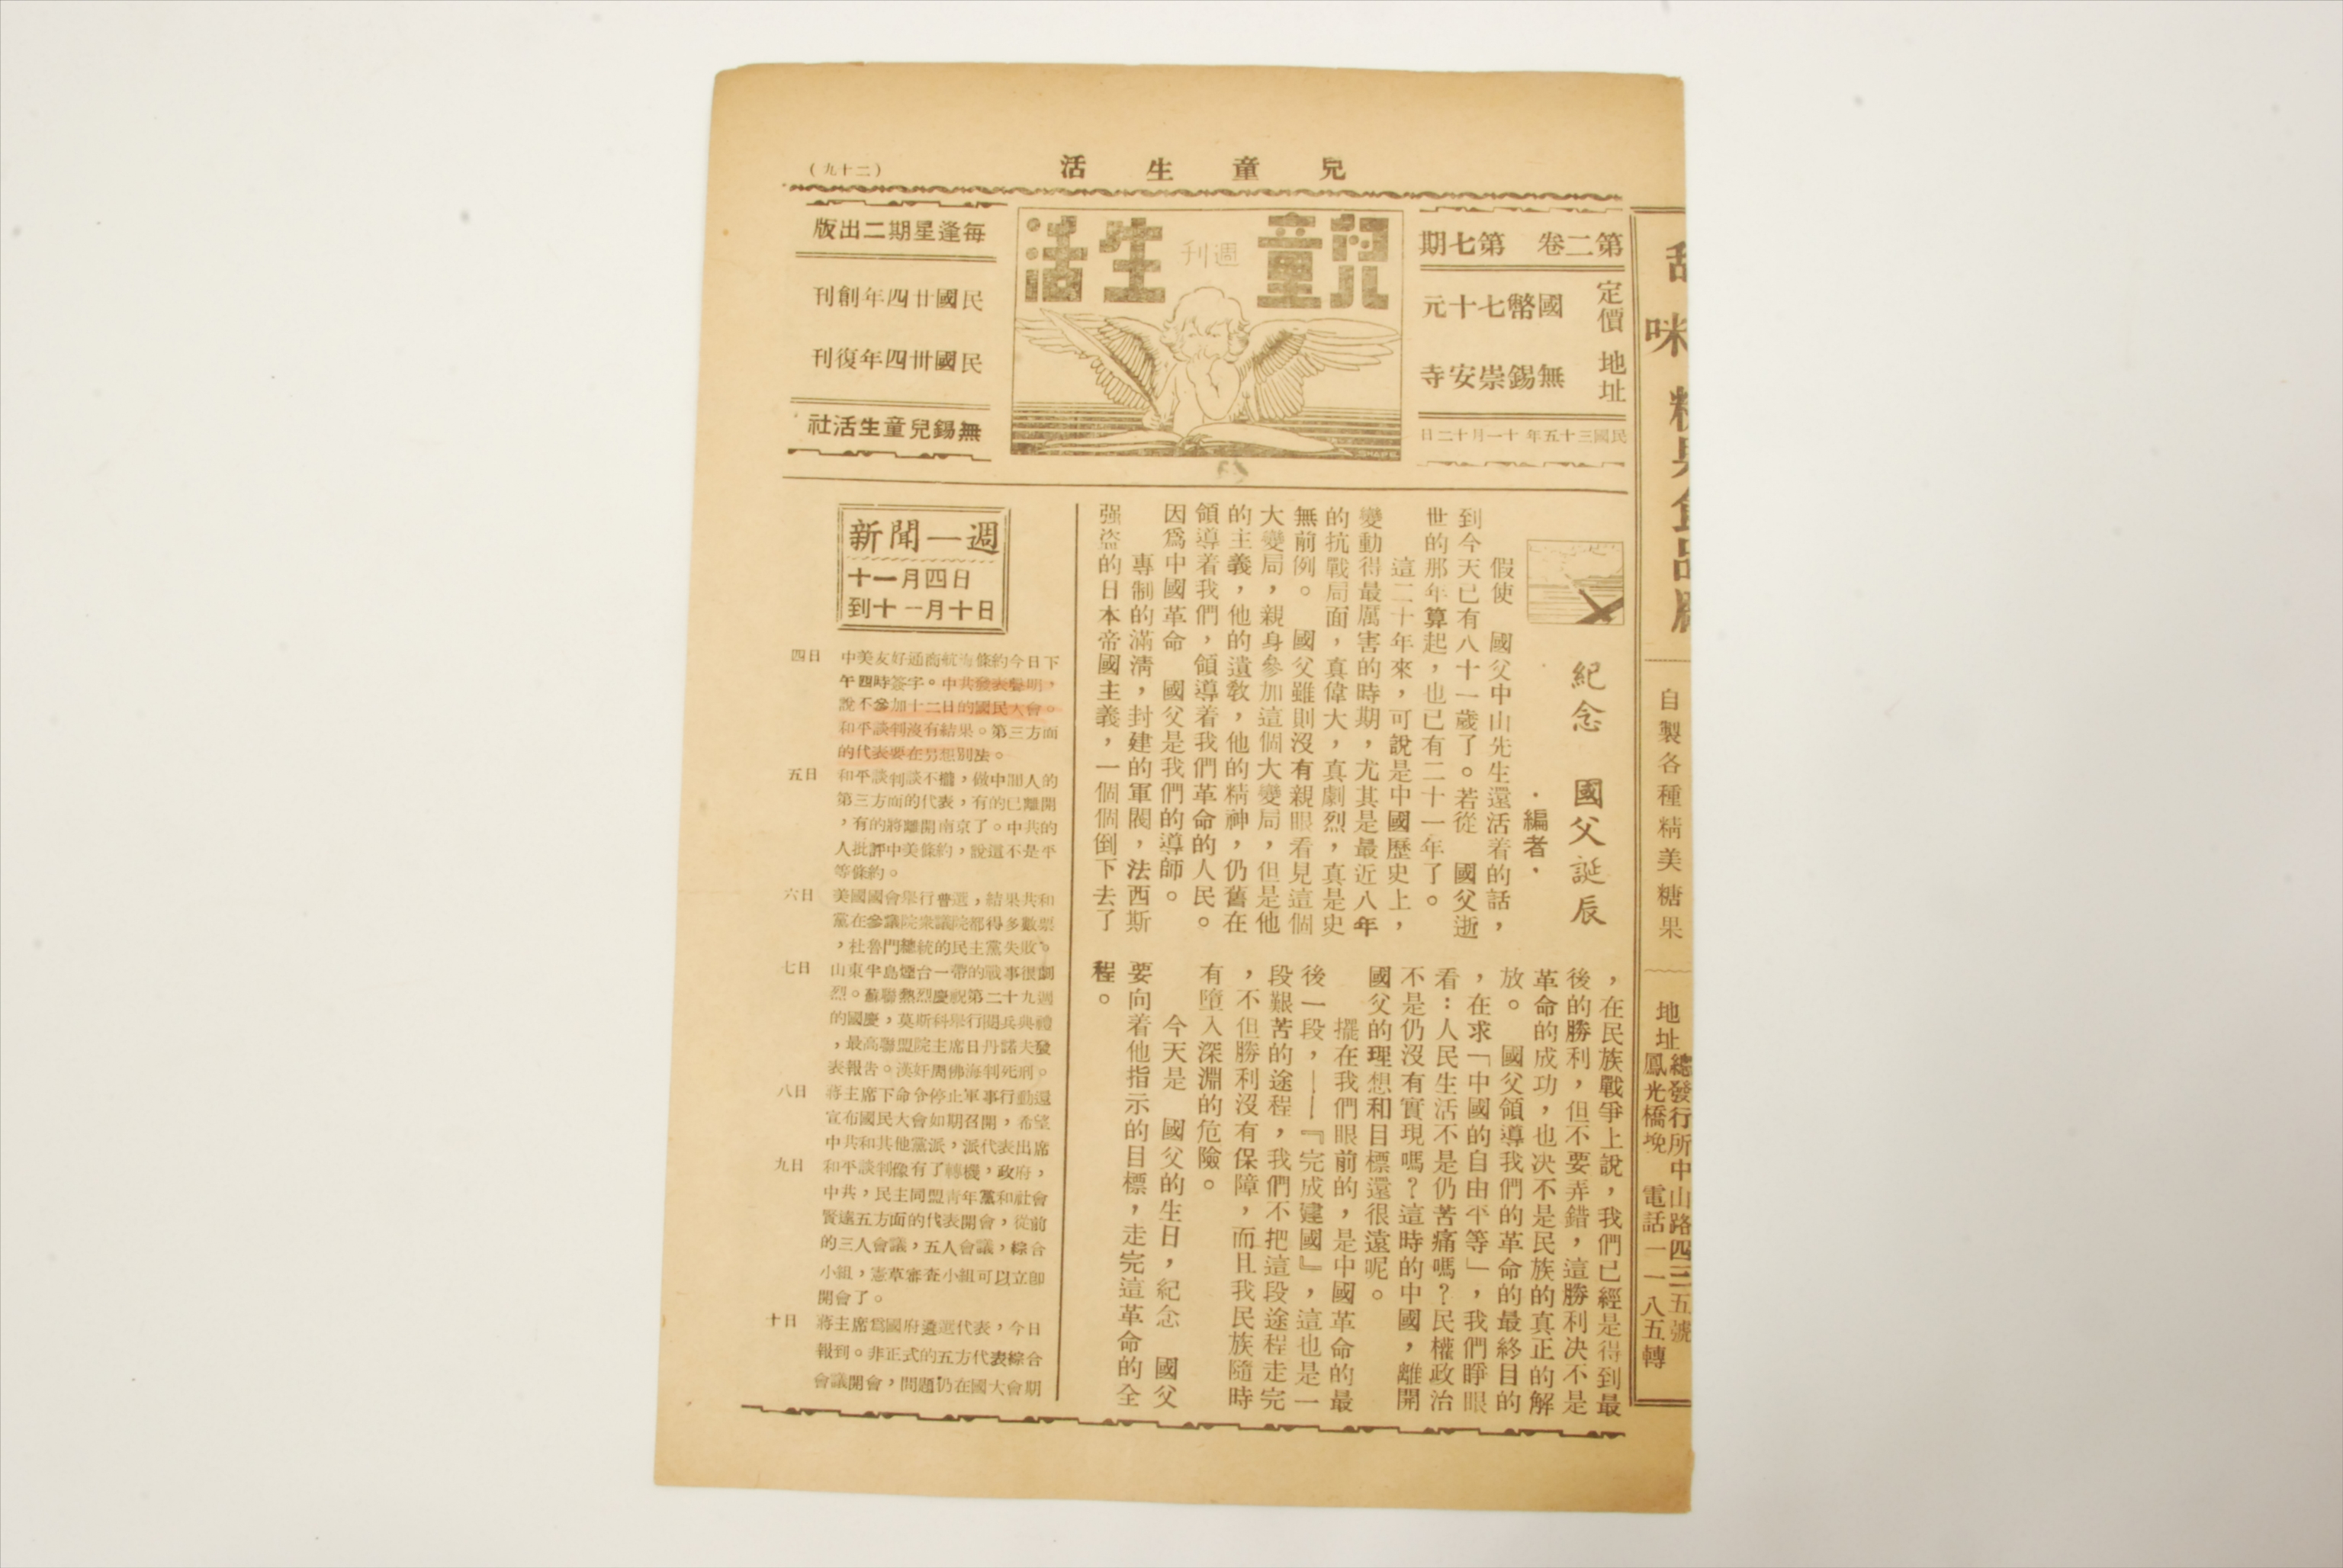 兒童生活
（二十九）
第二卷 第七期
定價 國幣七十元
地址 無錫崇安寺
民國三十五年十一月十二日
兒童生活
週刊
每逢星期二出版
民國廿四年創刊
民國卅四年復刊
無錫兒童生活社
紀念 國父誕辰
·編者·
假使 國父中山先生還活着的話，
到今天已有八十一歲了。若從 國父逝
世的那年算起，也已有二十一年了。
這二十年來，可說是中國歷史上，
變動得最厲害的時期，尤其是最近八年
的抗戰局面，真偉大，真劇烈，真是史
無前例。 國父雖則沒有親眼看見這個
大變局，親身參加這個大變局，但是他
的主義，他的遺教，他的精神，仍舊在
領導着我們，領導着我們革命的人民。
因爲中國革命 國父是我們的導師。
專制的滿淸，封建的軍閥，法西斯
强盜的日本帝國主義，一個個倒下去了
，在民族戰爭上說，我們已經是得到最
後的勝利，但不要弄錯，這勝利决不是
革命的成功，也决不是民族的真正的解
放。 國父領導我們的革命的最終目的
，在求「中國的自由平等」，我們睜眼
看：人民生活不是仍苦痛嗎？民權政治
不是仍沒有實現嗎？這時的中國，離開
國父的理想和目標還很遠呢。
擺在我們眼前的，是中國革命的最
後一段，——『完成建國』，這也是一
段艱苦的途程，我們不把這段途程走完
，不但勝利沒有保障，而且我民族隨時
有墮入深淵的危險。
今天是 國父的生日，紀念 國父
要向着他指示的目標，走完這革命的全
程。
新聞一週
十一月四日
到十一月十日
四日 中美友好通商航海條約今日下
午四時簽字。中共發表聲明，
說不參加十二日的國民大會。
和平談判沒有結果。第三方面
的代表要在另想別法。
五日 和平談判談不攏，做中間人的
第三方面的代表，有的已離開
，有的將離開南京了。中共的
人批評中美條約，說這不是平
等條約。
六日 美國國會舉行普選，結果共和
黨在參議院衆議院都得多數票
，杜魯門總統的民主黨失敗。
七日 山東半島煙台一帶的戰事很劇
烈。蘇聯熱烈慶祝第二十九週
的國慶，莫斯科舉行閱兵與禮
，最高聯盟院主席日丹諾夫發
表報告。漢奸周佛海判死刑。
八日 蔣主席下命令停止軍事行動還
宣布國民大會如期召開，希望
中共和其他黨派，派代表出席
九日 和平談判像有了轉機，政府，
中共，民主同盟靑年黨和社會
賢達五方面的代表開會，從前
的三人會議，五人會議，綜合
小組，憲草審查小組可以立卽
開會了。
十日 蔣主席爲國府遴選代表，今日
報到。非正式的五方代表綜合
會議開會，問題仍在國大會期
自製各種精美糖果
地址
總發行所中山路四三五號
鳳光橋堍 電話一一八五轉